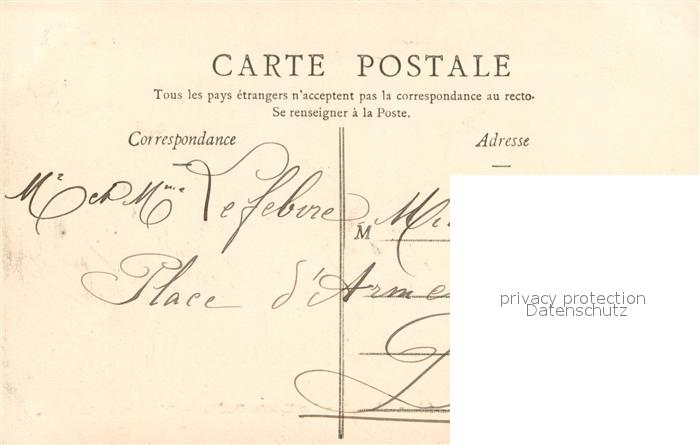 CARTE POSTALE
Tous les pays étrangers n'acceptent pas la correspondance au recto.
Se renseigner à la Poste.
Correspondance
Adresse
Mr et Mme Lefebvre
M
Place d'Arme
privacy protection
Datenschutz